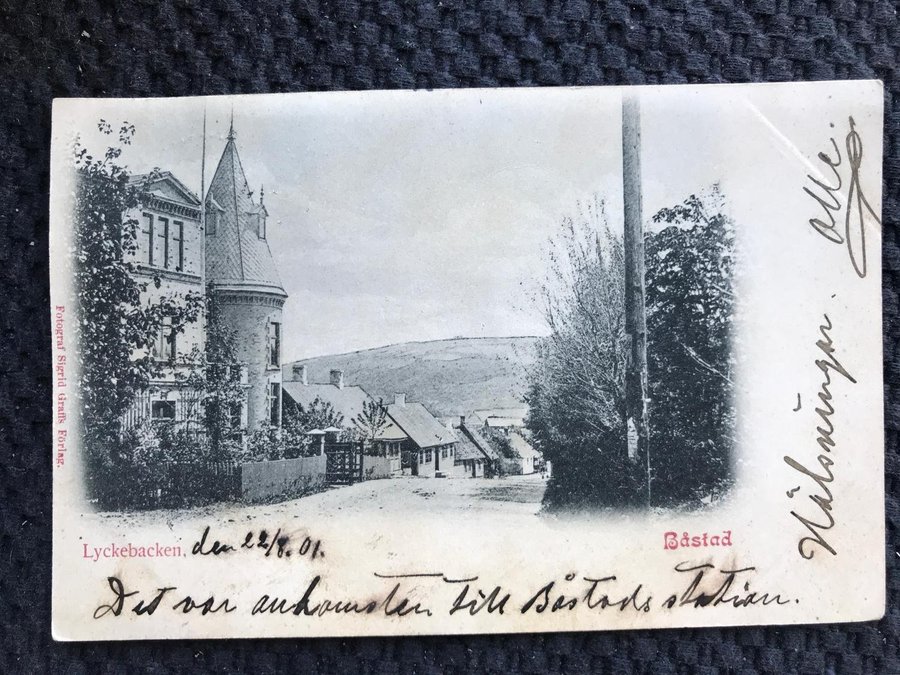 Fotograf Sigrid Graffs Förlag.
Lyckebacken.
den 22/8. 01.
Båstad
Det var ankomsten till Båstads station.
Hälsningar.
alle.